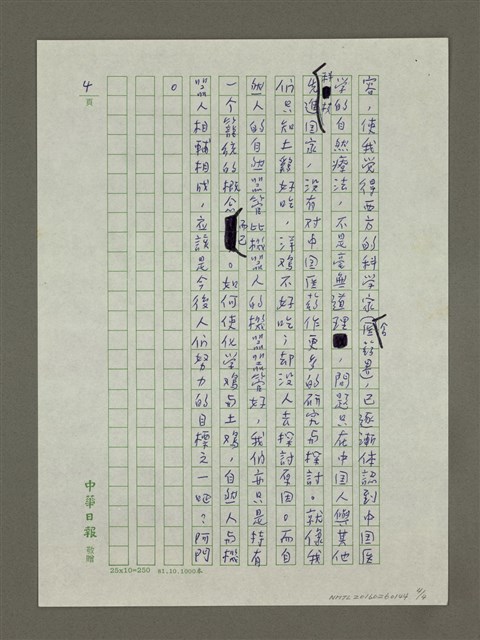 容，使我觉得西方的科学家(含医葯界，已逐漸体認到中国医
学的自然療法，不是毫無道理，問題只在中国人與其他
科技先進国家，沒有对中国医葯作更多的研究与探討。就像我
们只知土雞好吃，洋鸡不好吃；却没人去探討原因。而自
然人的自然器管比機器人的機器器管好，我们亦只是持有
一个籠统的概念而已。如何使化学鸡与土鸡，自然人与機
器人相輔相成，应該是今後人们努力的目標之一呢？阿門
。
4 頁
中華日報 敬贈
25×10=250 81.10.1000本
NMTL20160260144 4/4